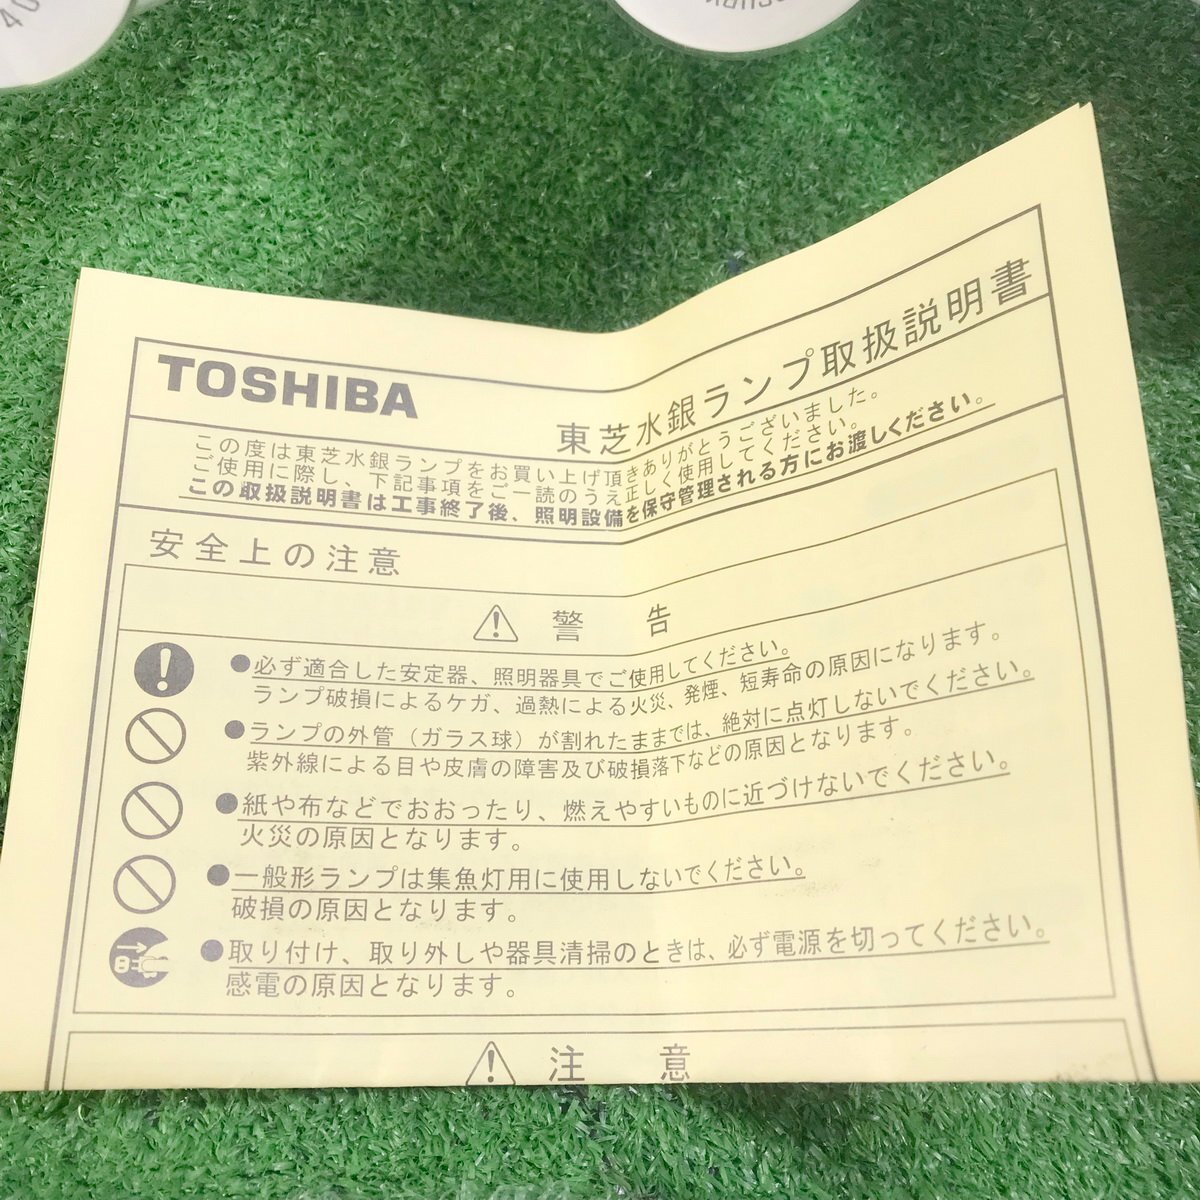 40
TOSHIBA
東芝水銀ランプ取扱説明書
この度は東芝水銀ランプをお買い上げ頂きありがとうございました。
ご使用に際し、下記事項をご一読のうえ正しく使用してください。
この取扱説明書は工事終了後、照明設備を保守管理される方にお渡しください。
安全上の注意
警 告
●必ず適合した安定器、照明器具でご使用してください。
ランプ破損によるケガ、過熱による火災、発煙、短寿命の原因になります。
●ランプの外管（ガラス球）が割れたままでは、絶対に点灯しないでください。
紫外線による目や皮膚の障害及び破損落下などの原因となります。
●紙や布などでおおったり、燃えやすいものに近づけないでください。
火災の原因となります。
●一般形ランプは集魚灯用に使用しないでください。
破損の原因となります。
●取り付け、取り外しや器具清掃のときは、必ず電源を切ってください。
感電の原因となります。
注 意